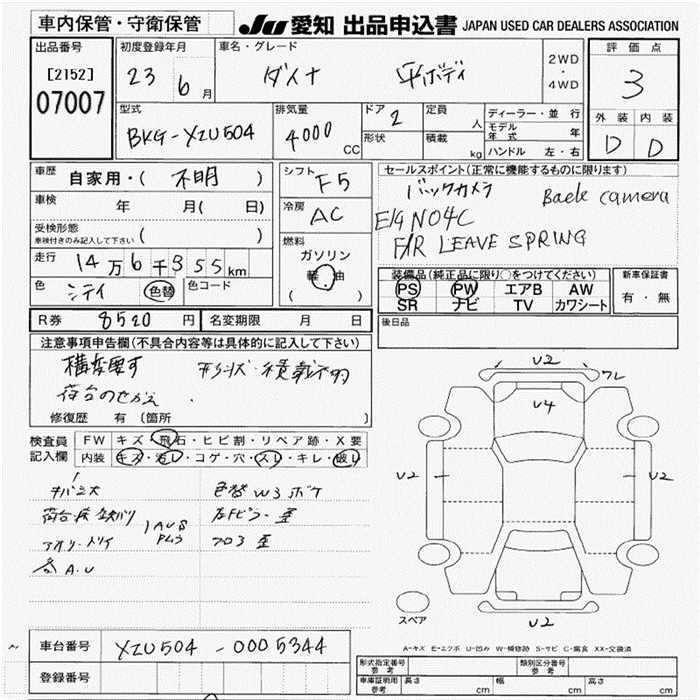 車内保管・守衛保管
JU 愛知 出品申込書 JAPAN USED CAR DEALERS ASSOCIATION
出品番号
[2152]
07007
初度登録年月
23 6月
車名・グレード
ダイナ 平ボディ
2WD
・
4WD
評価点
3
型式
BKG-XZU504
排気量
4000 CC
ドア 2
形状
定員 人
積載 kg
ディーラー・並行
モデル年式 年
ハンドル 左・右
外装 内装
D D
車歴 自家用・( 不明 )
車検 年 月( 日)
受検形態
車検付きのみ記入して下さい ( )
走行 14万6千355km
色 シテイ 色替 色コード
シフト F5
冷房 AC
燃料
ガソリン
軽・油
( )
セールスポイント(正常に機能するものに限ります)
バックカメラ Back camera
E/G N04C
F/R LEAVE SPRING
装備品(純正品に限り○をつけてください)
PS PW エアB AW
SR ナビ TV カワシート
新車保証書
有・無
R券 8520円 名変期限 月 日
後日品
注意事項申告欄(不具合内容等は具体的に記入して下さい)
構変要す 形状・積載不明
荷台のせかえ
修復歴 有 (箇所 )
検査員記入欄
FW キズ・飛石・ヒビ割・リペア跡・X要
内装 キズ・汚レ・コゲ・穴・スレ・キレ・破レ
色替W3ボケ
AUS
アオリ
A.U
U2
ワレ
U4
U2
U2
U2
スペア
A-キズ E-エクボ U-凹み W-補修跡 S-サビ C-腐食 XX-交換済
車台番号 XZU504-0005344
登録番号
型式指定番号
参考
類別区分番号
参考
車庫証明用
参考
長さ cm 幅 cm 高さ cm